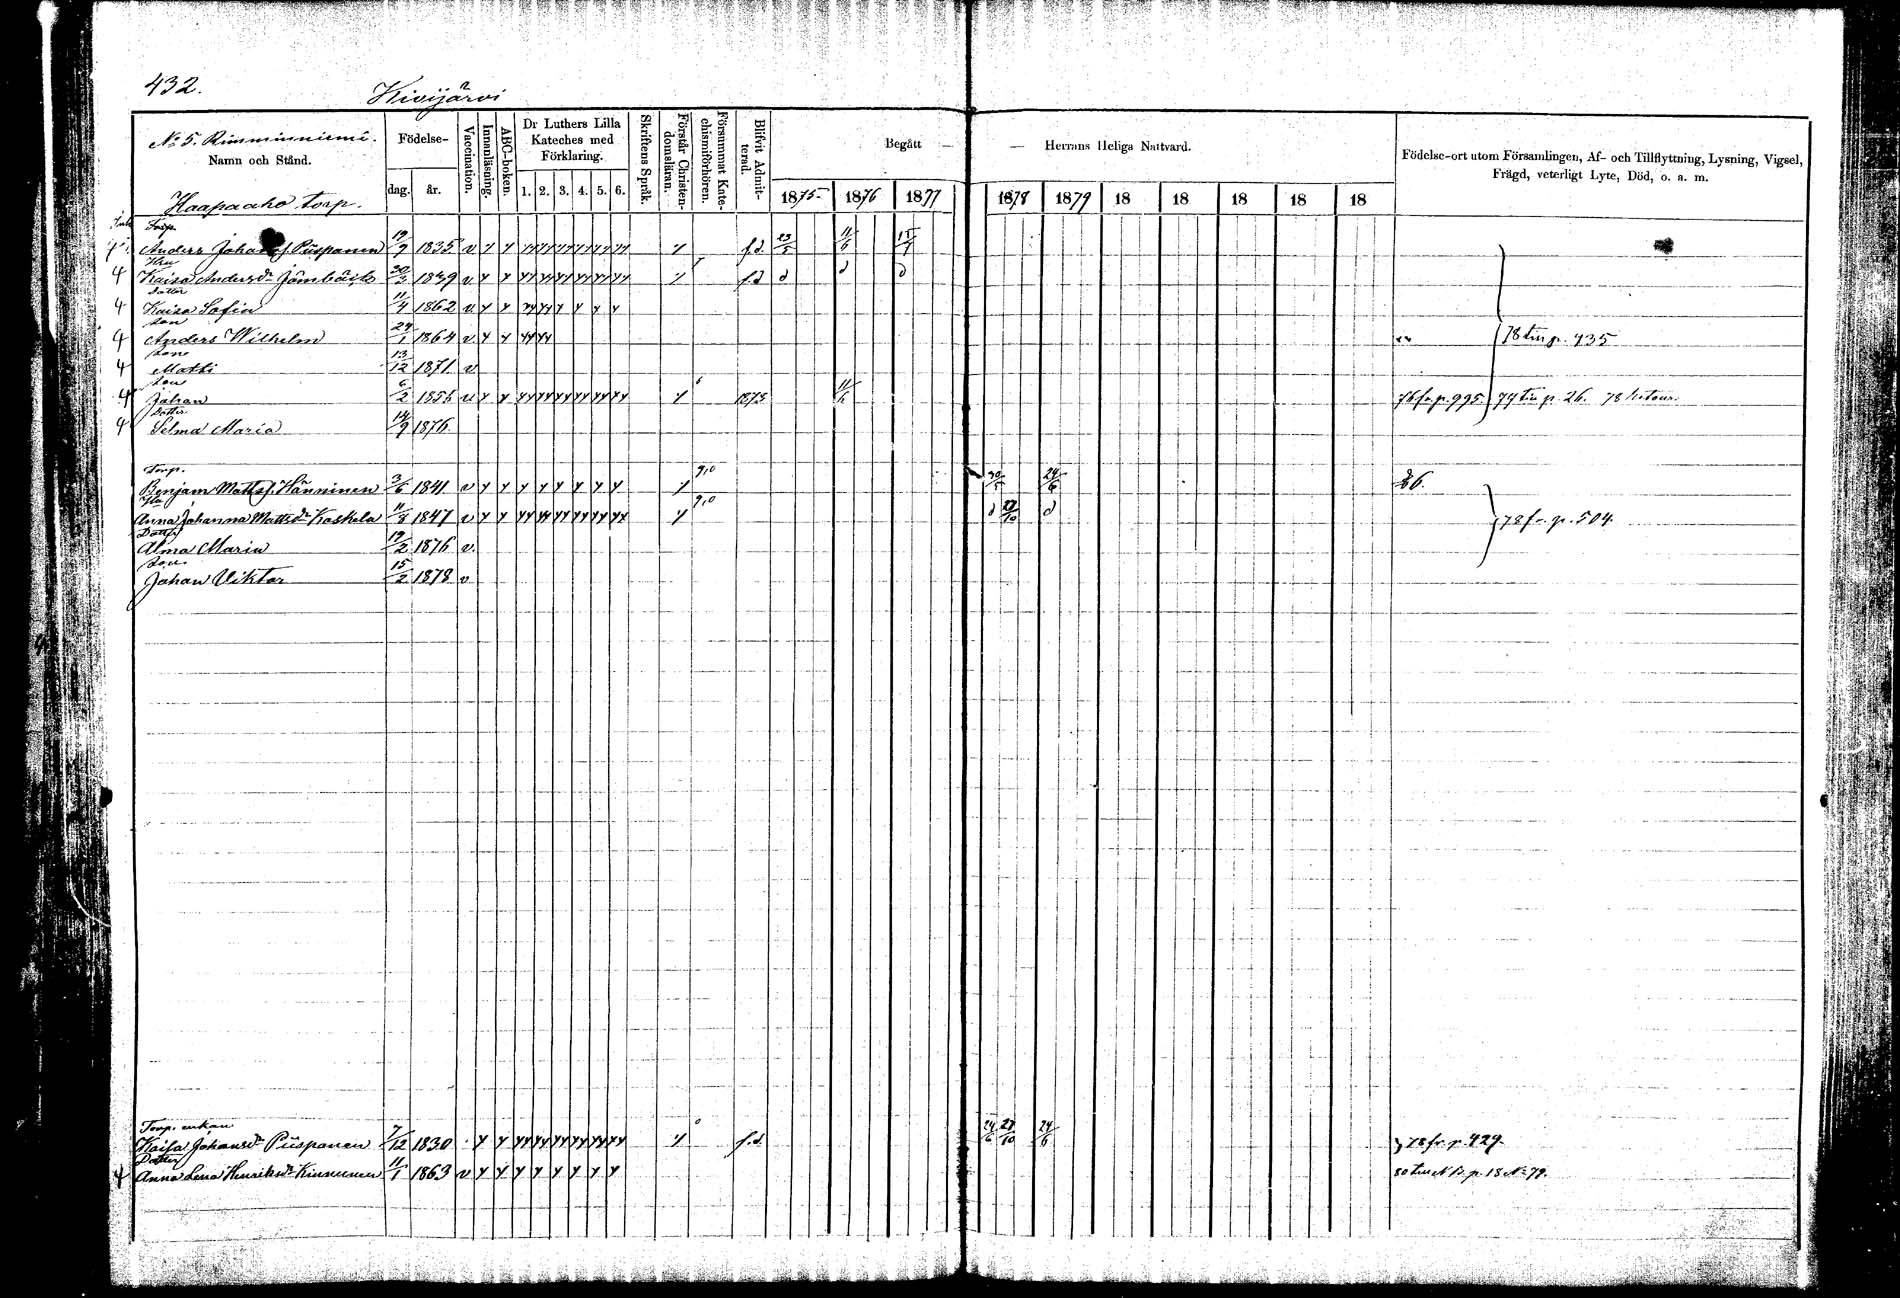 432.
Kivijärvi
No 5.
Namn och Stånd.
Födelse-
dag. år.
Vaccination.
Innanläsning.
ABC-boken.
Dr Luthers Lilla Kateches med Förklaring.
1. 2. 3. 4. 5. 6.
Skriftens Språk.
Förstår Christendomsläran.
Försummat Katechismiförhören.
Blifvit Admitterad.
Begått — — Herrans Heliga Nattvard.
1875 1876 1877 1878 1879 18 18 18 18 18
Födelse-ort utom Församlingen, Af- och Tillflyttning, Lysning, Vigsel,
Frägd, veterligt Lyte, Död, o. a. m.
Haapaaho torp.
Torp.
Anders Johansf. Piispanen 19/9 1835 v f.d. 23/5 11/6
Hu
Kaisa Andersdr Jämbäck v f.d
Dotter
Kaisa Sofia 11/4 1862 v.
Son
Anders Wilhelm 24/1 1864 v. 78 till p. 435
Son
Matti 13/12 1871. v
Son
Johan 6/2 1856 v 1873 11/6 76 fr. p. 995. 77 till p. 26. 78 retour
Dotter
Selma Maria 14/9 1876.
Torp.
Benjam Mattsf. Hänninen 3/6 1841 v 30/5 24/6
Hu
Anna Johanna Mattsdr Koskela 11/8 1847 v 27/10 78 fr. p. 504.
Dotter
Alma Maria 19/2 1876 v.
Son
Johan Viktor 15/2 1878 v
Torp. enkan
Kaisa Johansdr Piispanen 7/12 1830 f.d. 24/6 27/10 24/6 78 fr. p. 429.
Dotter
Anna Lena Henriksdr Kinnunen 11/1 1863 v 80 till N B. p. 18 No 79.